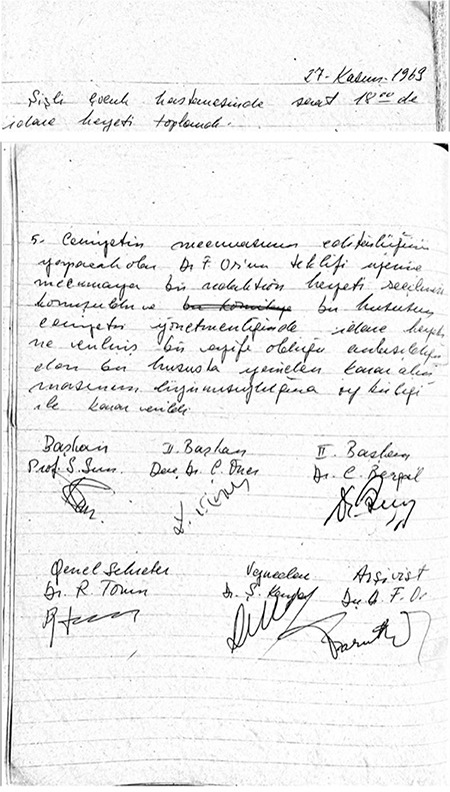 27-Kasım-1969
Şişli Çocuk hastanesinde saat 18⁰⁰ de
idare heyeti toplandı.
5. Cemiyetin mecmuasının editörlüğünü
yapacak olan Dr F. Or'un teklifi üzerine
mecmuaya bir redaktion heyeti seçilmesi
konuşuldu ve bu komiteye bu hususun
cemiyetin yönetmenliğinde idare heyeti
ne verilmiş bir vazife olduğu anlaşıldığı
dan bu hususta yeniden karar alın
masının lüzumsuzluğuna oy birliği
ile karar verildi
Başkan II. Başkan II. Başkan
Prof. S. Doç. Dr. C. Öner Dr. C. Bergal
Genel Sekreter Veznedar Arşivist
Dr. R. Tomm Dr. Ş. Doç Dr F. Or